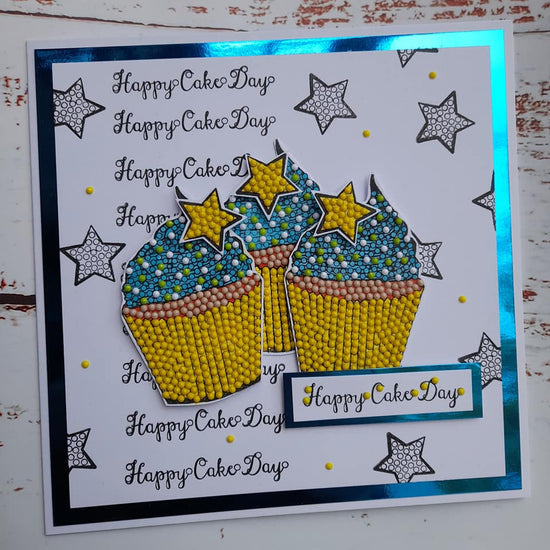 Happy Cake Day
Happy Cake Day
Happy Cake Day
Happy
Ha
Happy Cake Day
Happy Cake Day
Happy Cake Day